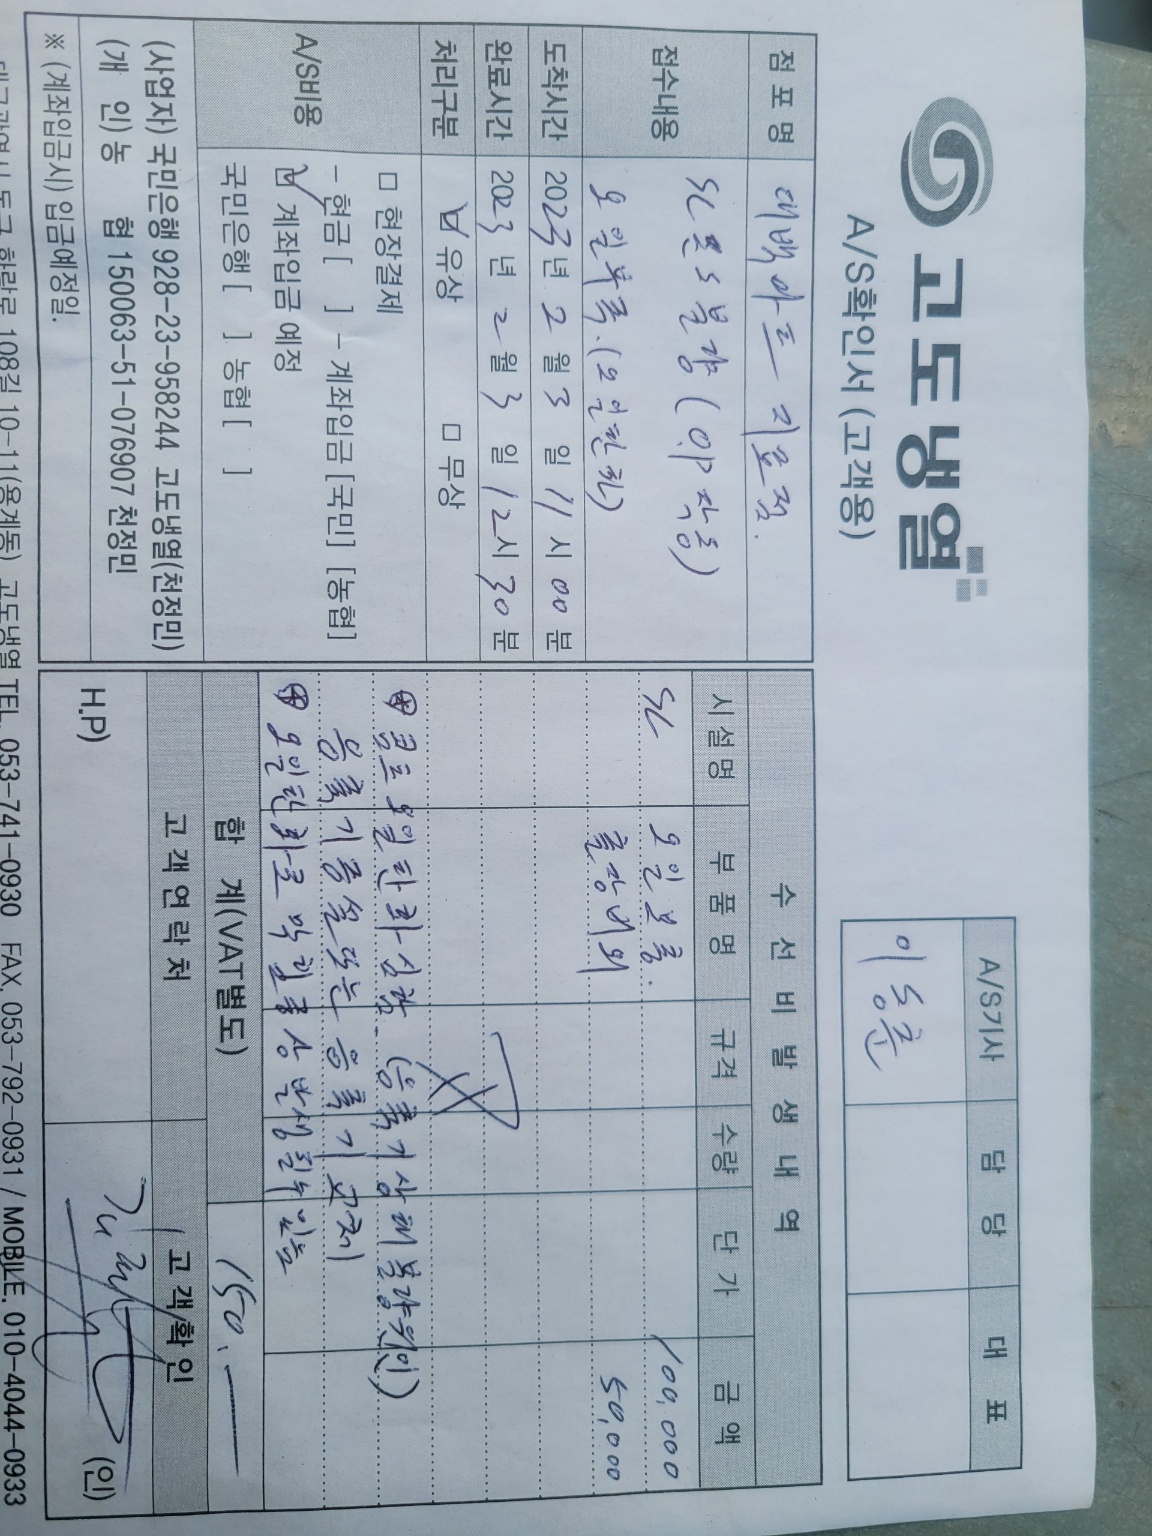 고도냉열
A/S확인서 (고객용)
A/S기사 담당 대표
이동훈
점포명 대백마트 지묘점.
접수내용 SC 온도 불량 (O.P 작동)
오일부족. (오일탄화)
도착시간 2023년 2월 3일 11시 00분
완료시간 2023년 2월 3일 12시 30분
처리구분 유상 무상
A/S비용 현장결제
- 현금 [ ] - 계좌임금 [국민] [농협]
계좌임금 예정
국민은행 [ ] 농협 [ ]
(사업자) 국민은행 928-23-958244 고도냉열(천정민)
(개 인) 농 협 150063-51-076907 천정민
※ (계좌임금시) 임금예정일.
수선비발생내역
시설명 부품명 규격 수량 단가 금액
SC 오일보충. 100,000
출장비외 50,000
콤프 오일탄화 심함. (응축기 상태 불량 원인)
응축기 교체
오일탄화로 막힘 현상 발생될수 있음
합 계(VAT별도) 150.
고객연락처 고객확인
H.P) (인)
108길 10-11(용계동) 고도냉열 TEL. 053-741-0930 FAX. 053-792-0931 / MOBILE. 010-4044-0933